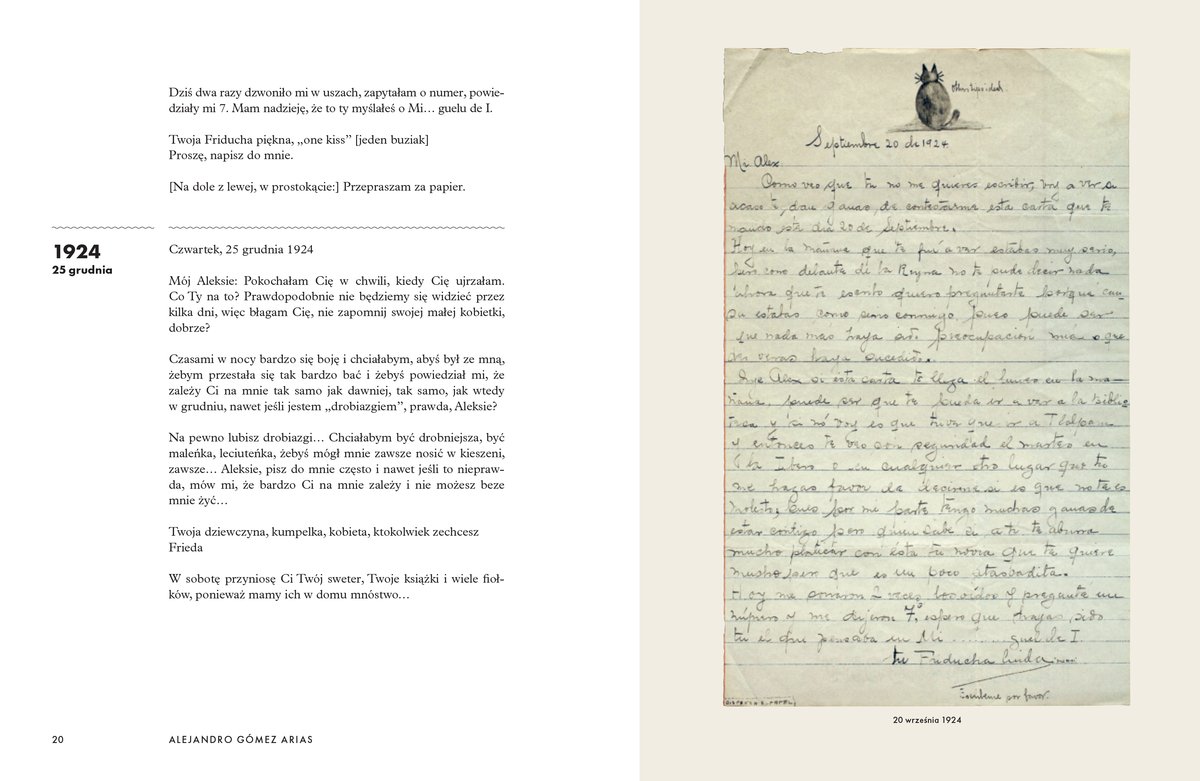 Dziś dwa razy dzwoniło mi w uszach, zapytałam o numer, powie-
działy mi 7. Mam nadzieję, że to ty myślałeś o Mi… guelu de I.
Twoja Friducha piękna, „one kiss” [jeden buziak]
Proszę, napisz do mnie.
[Na dole z lewej, w prostokącie:] Przepraszam za papier.
1924
25 grudnia
Czwartek, 25 grudnia 1924
Mój Aleksie: Pokochałam Cię w chwili, kiedy Cię ujrzałam.
Co Ty na to? Prawdopodobnie nie będziemy się widzieć przez
kilka dni, więc błagam Cię, nie zapomnij swojej małej kobietki,
dobrze?
Czasami w nocy bardzo się boję i chciałabym, abyś był ze mną,
żebym przestała się tak bardzo bać i żebyś powiedział mi, że
zależy Ci na mnie tak samo jak dawniej, tak samo, jak wtedy
w grudniu, nawet jeśli jestem „drobiazgiem”, prawda, Aleksie?
Na pewno lubisz drobiazgi… Chciałabym być drobniejsza, być
maleńka, leciuteńka, żebyś mógł mnie zawsze nosić w kieszeni,
zawsze… Aleksie, pisz do mnie często i nawet jeśli to niepraw-
da, mów mi, że bardzo Ci na mnie zależy i nie możesz beze
mnie żyć…
Twoja dziewczyna, kumpelka, kobieta, ktokolwiek zechcesz
Frieda
W sobotę przyniosę Ci Twój sweter, Twoje książki i wiele fioł-
ków, ponieważ mamy ich w domu mnóstwo…
20
ALEJANDRO GÓMEZ ARIAS
Septiembre 20 de 1924.
Mi Alex
Como veo que tu no me quieres escribir, voy a ver a
acaso te dan ganas de contestarme esta carta que te
mando este dia 20 de Septiembre.
Hoy en la mañana que te fuí a ver estabas muy serio,
pero como delante de la Reyna no te pude decir nada
ahora que te escribo quiero preguntarte porque
estabas como serio conmigo, pues puede ser
que nada más haya sido preocupación mía o que
de veras haya sucedido.
Oye Alex si esta carta te llega el lunes en la ma-
ñana puede ser que te pueda ir a ver a la Biblio
teca y si nó voy es que tuve que ir a Tlalpam
y entonces te veo con seguridad el martes en
la Ibero o en cualquier otro lugar que tu
me hagas favor de decirme si es que no te es
molesto; pues por mi parte tengo muchas ganas de
estar contigo pero quien sabe si a ti te aburra
mucho platicar con ésta tu novia que te quiere
mucho ser que es un poco atasbadita.
Hoy me sonaron 2 veces los oidos y pregunte un
número y me dijeron 7, espero que hayas sido
tú el que pensaba en Mi ........ guel de I.
tu Friducha linda
Escribeme por favor.
DISPENSA E. PAPEL
20 września 1924